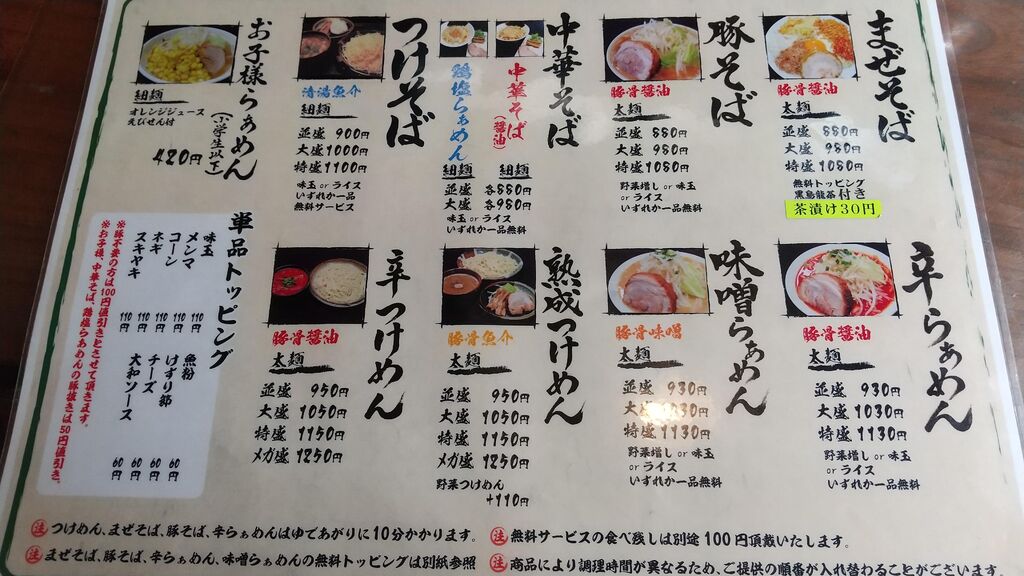 まぜそば
豚骨醤油
太麺
並盛 880円
大盛 980円
特盛 1080円
無料トッピング
黒烏龍茶付き
茶漬け30円
豚そば
豚骨醤油
太麺
並盛 880円
大盛 980円
特盛 1080円
野菜増し or 味玉
or ライス
いずれか一品無料
中華そば
中華そば(醤油)
細麺
鶏塩らぁめん
細麺
並盛 各880円
大盛 各980円
味玉 or ライス
いずれか一品無料
つけそば
清湯魚介
細麺
並盛 900円
大盛 1000円
特盛 1100円
味玉 or ライス
いずれか一品
無料サービス
お子様らぁめん
(小学生以下)
細麺
オレンジジュース
えびせん付
420円
辛らぁめん
豚骨醤油
太麺
並盛 930円
大盛 1030円
特盛 1130円
野菜増し or 味玉
or ライス
いずれか一品無料
味噌らぁめん
豚骨味噌
太麺
並盛 930円
大盛 1030円
特盛 1130円
野菜増し or 味玉
or ライス
いずれか一品無料
熟成つけめん
豚骨魚介
太麺
並盛 950円
大盛 1050円
特盛 1150円
メガ盛 1250円
野菜つけめん
+110円
辛つけめん
豚骨醤油
太麺
並盛 950円
大盛 1050円
特盛 1150円
メガ盛 1250円
単品トッピング
味玉 110円
メンマ 110円
コーン 110円
ネギ 110円
スキヤキ 110円
魚粉 60円
けずり節 60円
チーズ 60円
大和ソース 60円
※豚不要の方は100円値引きとさせて頂きます。
※お子様、中華そば、鶏塩らぁめんの豚抜きは50円値引き。
注 つけめん、まぜそば、豚そば、辛らぁめんはゆであがりに10分かかります。
注 まぜそば、豚そば、辛らぁめん、味噌らぁめんの無料トッピングは別紙参照
注 無料サービスの食べ残しは別途100円頂戴いたします。
注 商品により調理時間が異なるため、ご提供の順番が入れ替わることがございます。